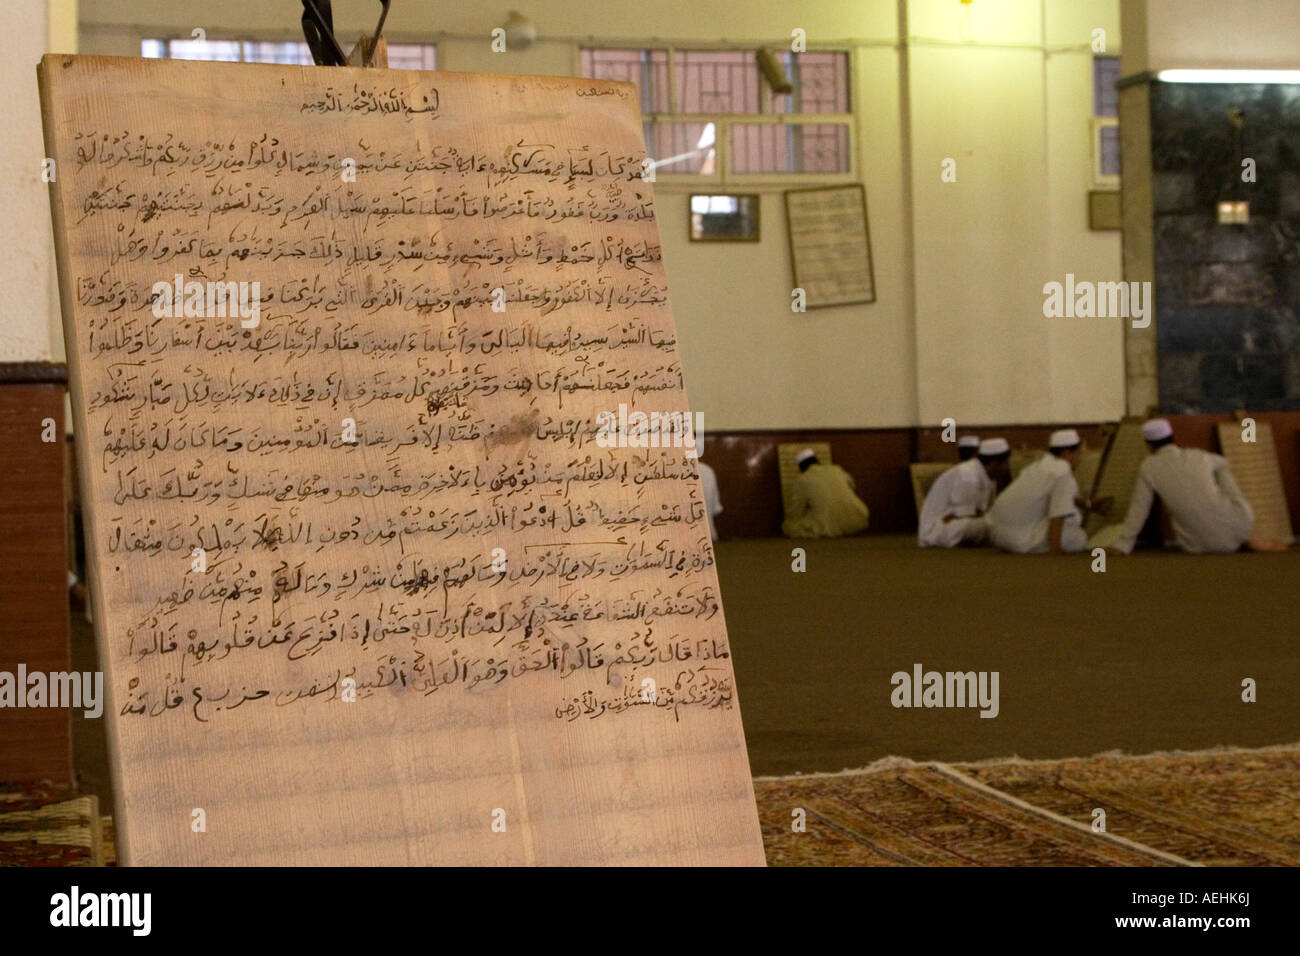 بسم الله الرحمن الرحيم
لقد كان لسبإ في مسكنهم ءاية جنتن عن يمين وشمال كلوا من رزق ربكم واشكروا له
بلدة طيبة ورب غفور فأعرضوا فأرسلنا عليهم سيل العرم وبدلنهم بجنتيهم جنتين
ذواتي أكل خمط وأثل وشيء من سدر قليل ذلك جزينهم بما كفروا وهل
يجزى إلا الكفور وجعلنا بينهم وبين القرى التي بركنا فيها قرى ظهرة وقدرنا
فيها السير سيروا فيها ليالي وأياما ءامنين فقالوا ربنا بعد بين أسفارنا وظلموا
أنفسهم فجعلنهم أحاديث ومزقنهم كل ممزق إن في ذلك ءلايت لكل صبار شكور
ولقد صدق عليهم إبليس ظنه إلا فريقا من المؤمنين وما كان له عليهم
من سلطن إلا لنعلم من يؤمن بالاخرة ممن هو منها في شك وربك على
كل شيء حفيظ قل ادعوا الذين زعمتم من دون الله لا يملكون مثقال
ذرة في السموت ولا في الارض وما لهم فيهما من شرك وما له منهم من ظهير
ولا تنفع الشفعة عنده إلا لمن أذن له حتى إذا فزع عن قلوبهم قالوا
ماذا قال ربكم قالوا الحق وهو العلي الكبير حزب قل من
يرزقكم من السموت والأرض
alamy
Image ID: AEHK6J
www.alamy.com